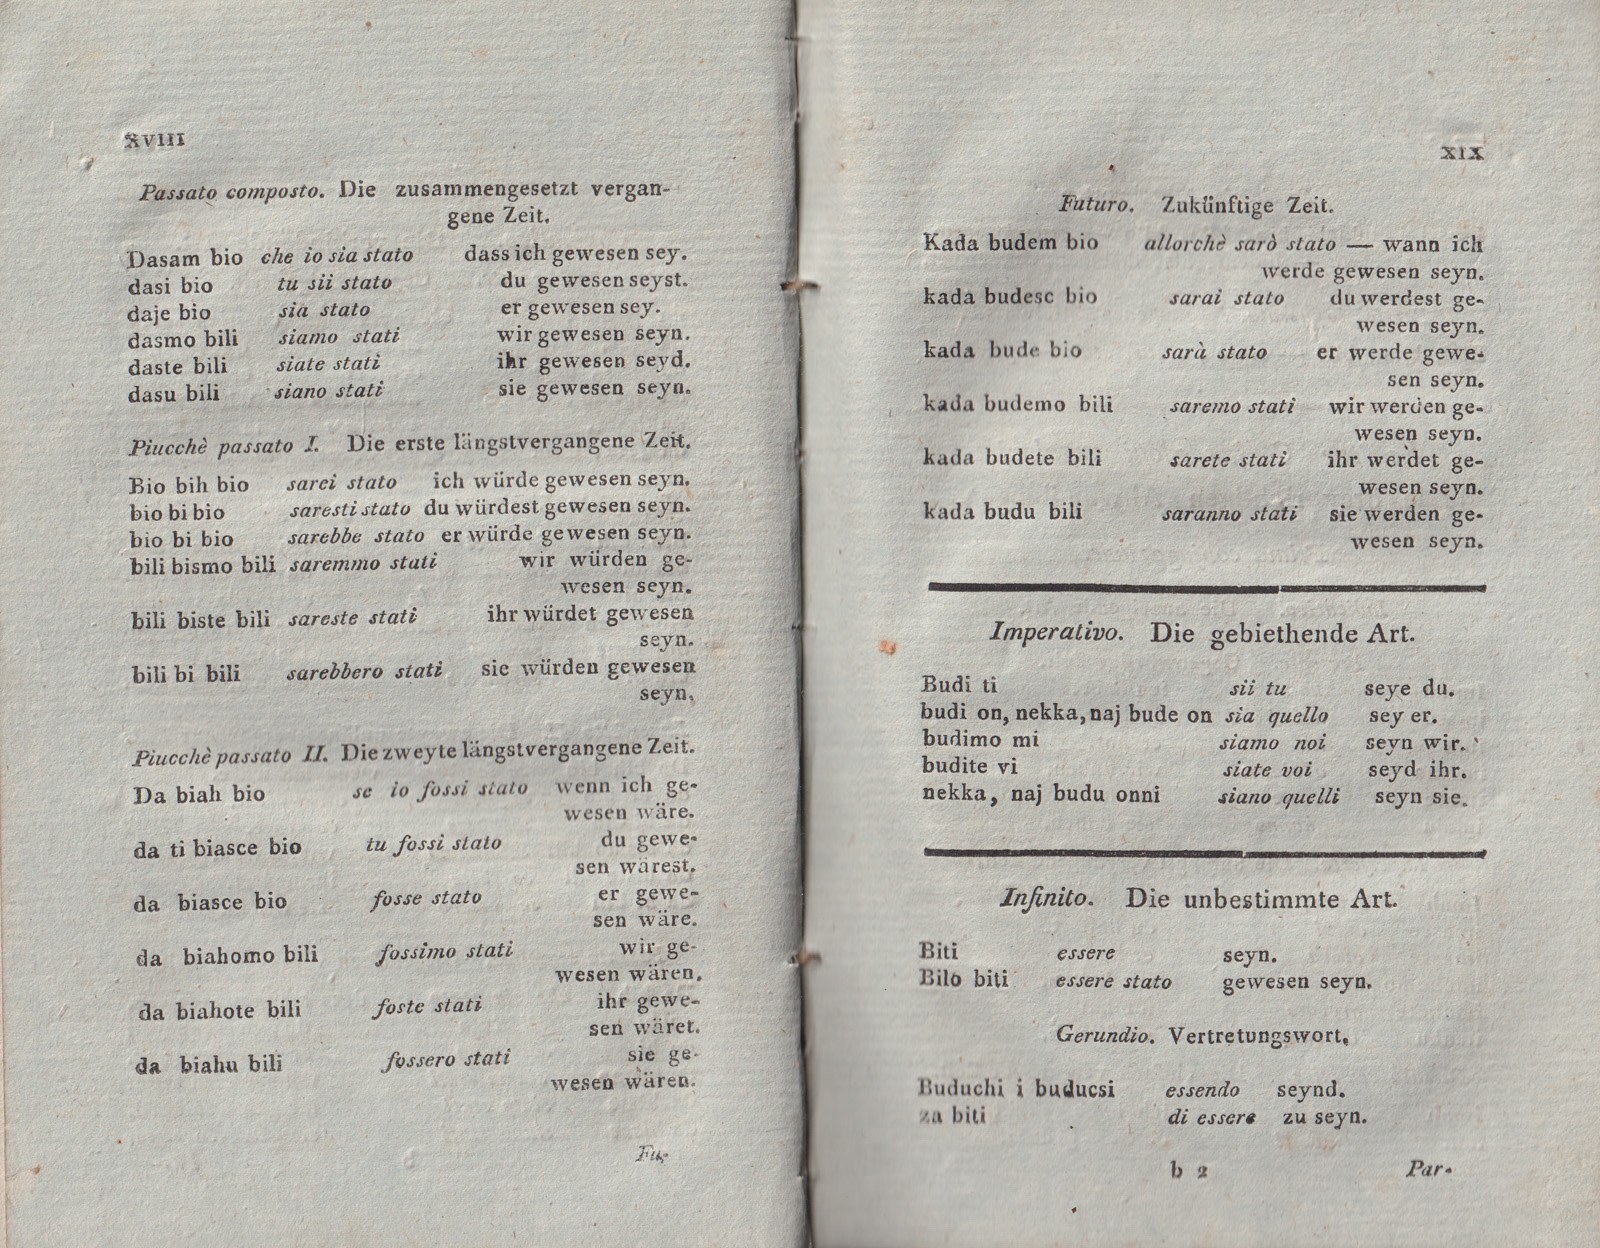 XVIII
Passato composto. Die zusammengesetzt vergan-
gene Zeit.
Dasam bio che io sia stato dass ich gewesen sey.
dasi bio tu sii stato du gewesen seyst.
daje bio sia stato er gewesen sey.
dasmo bili siamo stati wir gewesen seyn.
daste bili siate stati ihr gewesen seyd.
dasu bili siano stati sie gewesen seyn.
Piucchè passato I. Die erste längstvergangene Zeit.
Bio bih bio sarei stato ich würde gewesen seyn.
bio bi bio saresti stato du würdest gewesen seyn.
bio bi bio sarebbe stato er würde gewesen seyn.
bili bismo bili saremmo stati wir würden ge-
wesen seyn.
bili biste bili sareste stati ihr würdet gewesen
seyn.
bili bi bili sarebbero stati sie würden gewesen
seyn.
Piucchè passato II. Die zweyte längstvergangene Zeit.
Da biah bio se io fossi stato wenn ich ge-
wesen wäre.
da ti biasce bio tu fossi stato du gewe-
sen wärest.
da biasce bio fosse stato er gewe-
sen wäre.
da biahomo bili fossimo stati wir ge-
wesen wären.
da biahote bili foste stati ihr gewe-
sen wäret.
da biahu bili fossero stati sie ge-
wesen wären.
Fu-
XIX
Futuro. Zukünftige Zeit.
Kada budem bio allorchè sarò stato — wann ich
werde gewesen seyn.
kada budesc bio sarai stato du werdest ge-
wesen seyn.
kada bude bio sarà stato er werde gewe-
sen seyn.
kada budemo bili saremo stati wir werden ge-
wesen seyn.
kada budete bili sarete stati ihr werdet ge-
wesen seyn.
kada budu bili saranno stati sie werden ge-
wesen seyn.
Imperativo. Die gebiethende Art.
Budi ti sii tu seye du.
budi on, nekka, naj bude on sia quello sey er.
budimo mi siamo noi seyn wir.
budite vi siate voi seyd ihr.
nekka, naj budu onni siano quelli seyn sie.
Infinito. Die unbestimmte Art.
Biti essere seyn.
Bilo biti essere stato gewesen seyn.
Gerundio. Vertretungswort.
Buduchi i buducsi essendo seynd.
za biti di essere zu seyn.
b 2 Par-